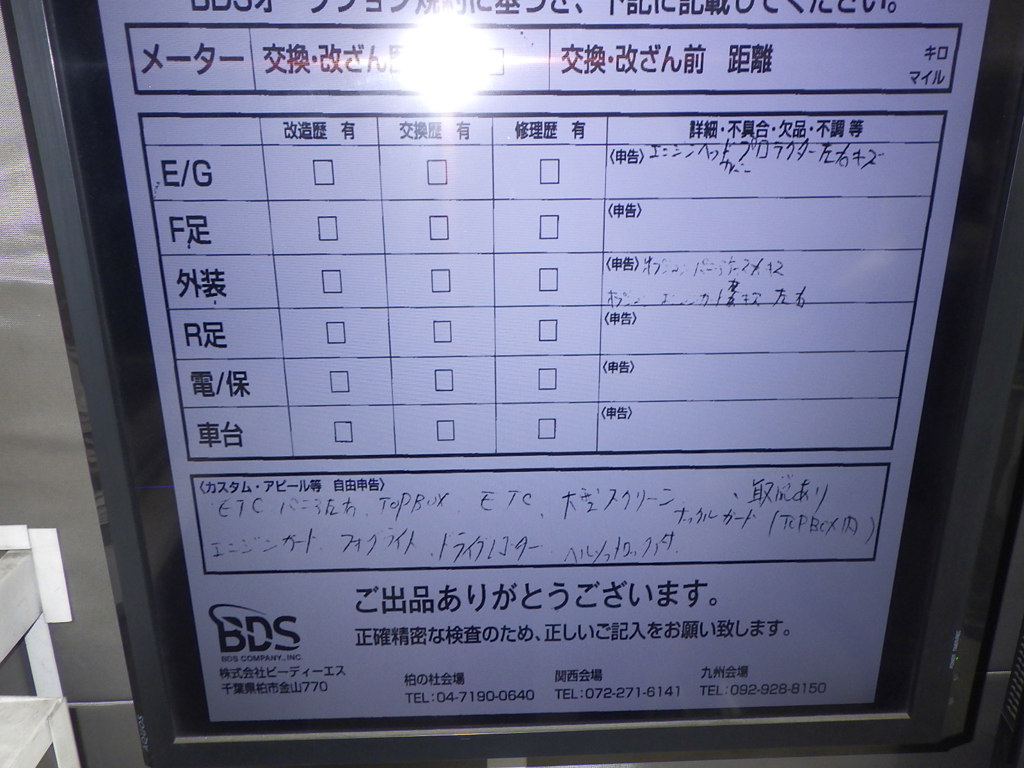 BDSオークション規約に基づき、下記に記載してください。
メーター 交換・改ざん 交換・改ざん前 距離 キロ マイル
改造歴 有 交換歴 有 修理歴 有 詳細・不具合・欠品・不調 等
E/G 〈申告〉エンジンヘッドプロテクター左右キズ
カバー
F足 〈申告〉
外装 〈申告〉
エンジンガード 左右
R足 〈申告〉
電/保 〈申告〉
車台 〈申告〉
〈カスタム・アピール等 自由申告〉
ETC パニア左右、TOPBOX ETC、大型スクリーン、取説あり
ナックルガード (TOPBOX内)
エンジンガード フォグライト、ドライブレコーダー
ご出品ありがとうございます。
正確精密な検査のため、正しいご記入をお願い致します。
BDS
BDS COMPANY., INC.
株式会社ビーディーエス
千葉県柏市金山770
柏の杜会場
TEL:04-7190-0640
関西会場
TEL:072-271-6141
九州会場
TEL:092-928-8150